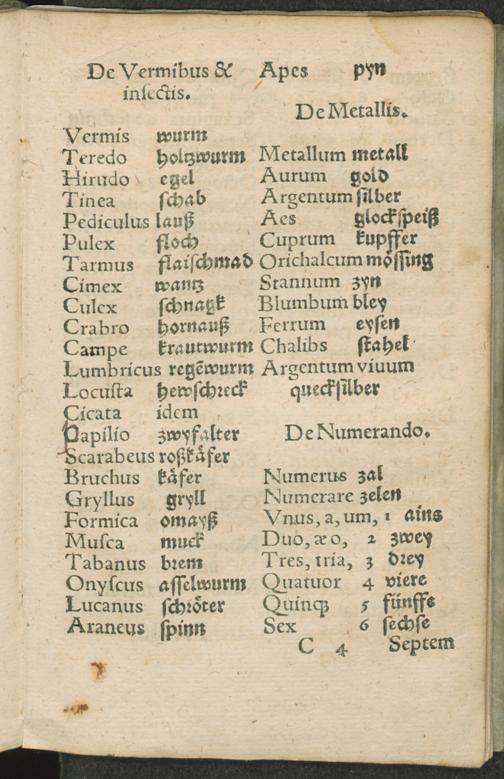 De Vermibus &
insectis.
Vermis wurm
Teredo holtzwurm
Hirudo egel
Tinea schab
Pediculus lauß
Pulex floch
Tarmus flaischmad
Cimex wantz
Culex schnagk
Crabro hornauß
Campe krautwurm
Lumbricus regēwurm
Locusta hewschreck
Cicata idem
Papilio zwyfalter
Scarabeus roßkäfer
Bruchus käfer
Gryllus gryll
Formica omayß
Musca muck
Tabanus brem
Onyscus asselwurm
Lucanus schröter
Araneus spinn
Apes pyn
De Metallis.
Metallum metall
Aurum gold
Argentum silber
Aes glockspeiß
Cuprum kupffer
Orichalcum mössing
Stannum zyn
Blumbum bley
Ferrum eysen
Chalibs stahel
Argentum viuum
quecksilber
De Numerando.
Numerus zal
Numerare zelen
Vnus, a, um, 1 ains
Duo, æ o, 2 zwey
Tres, tria, 3 drey
Quatuor 4 viere
Quinqꝫ 5 fünffe
Sex 6 sechse
C 4 Septem